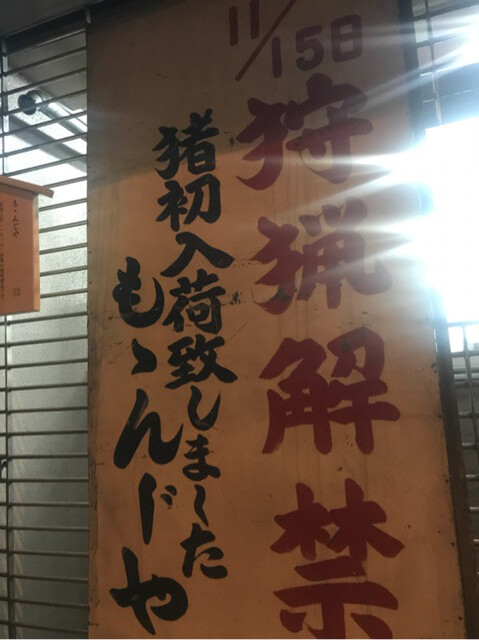 11/15日
狩猟解禁
猪初入荷致しました
もゝんじや
もゝんじや